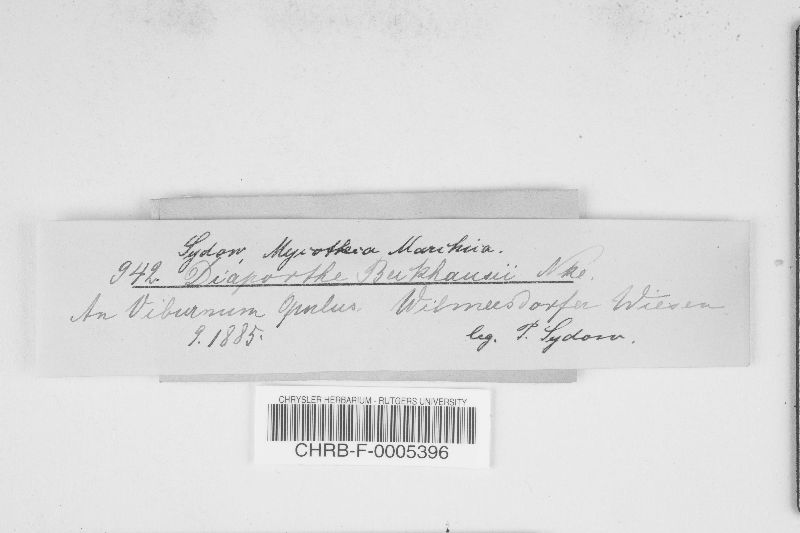 Sydow, Mycotheca Marchica.
942. Diaporthe Beckhausii Nke.
An Viburnum Opulus. Wilmersdorfer Wiesen
9. 1885.
leg. P. Sydow.
CHRYSLER HERBARIUM - RUTGERS UNIVERSITY
CHRB-F-0005396